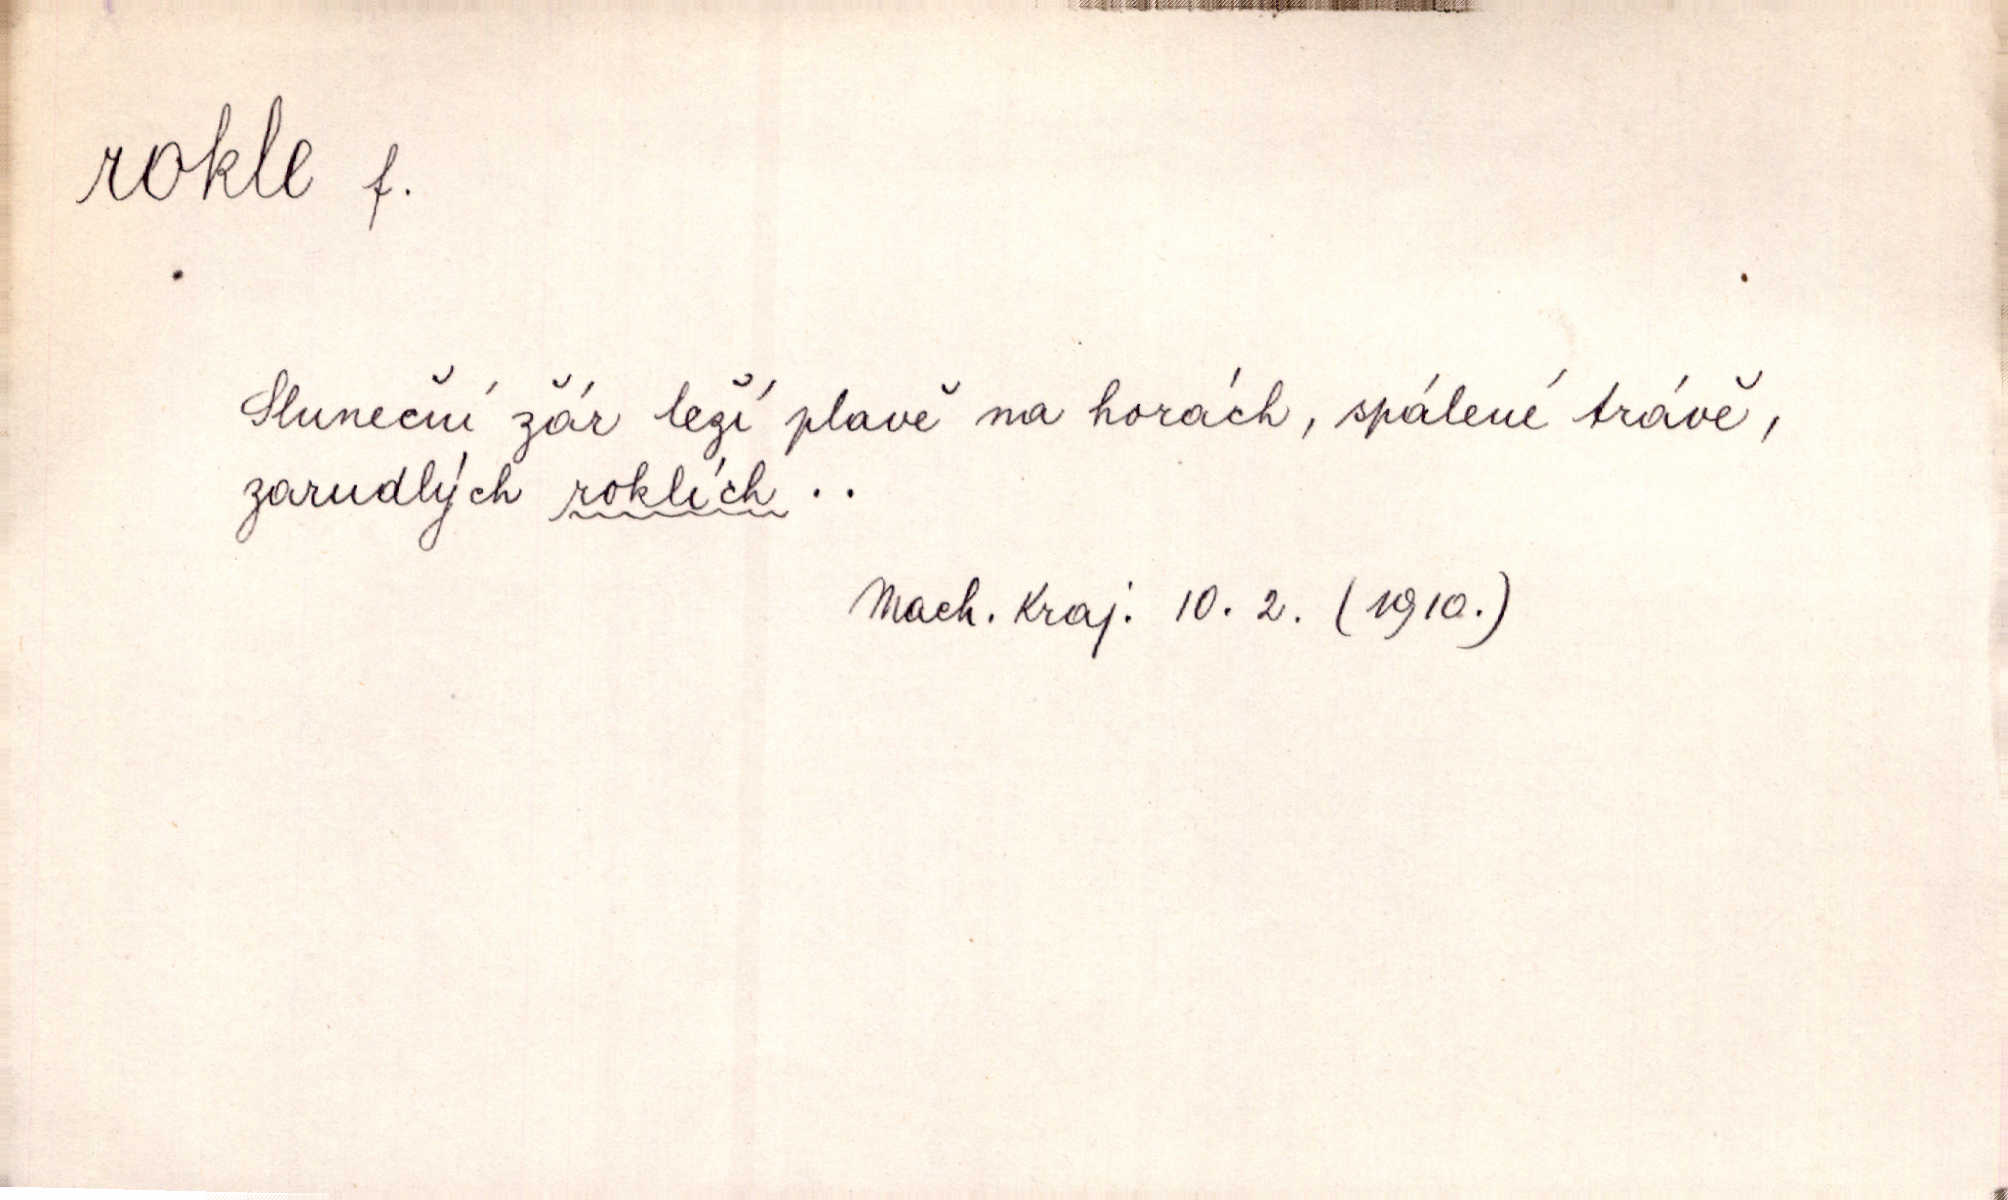 rokle f.
Sluneční žár leží plavě na horách, spálené trávě,
zarudlých roklích ..
Mach. Kraj. 10. 2. (1910.)